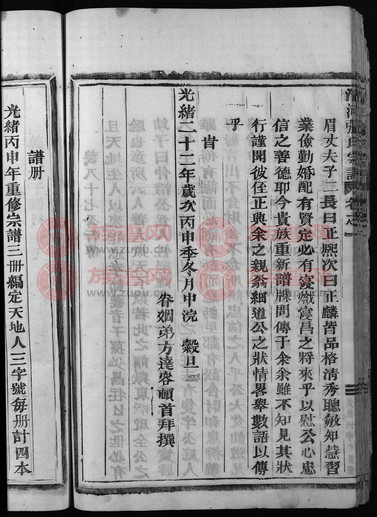 眉丈夫子二長曰正熙次曰正麟皆品格清秀聰敏知慧習
業儉勤婚配有賢定必有寖熾寖昌之將來乎以慰公心忠
信之善德耶今貴族重新譜牒問傳于余余雖不知見其狀
行謹閱彼侄正與余之親翁細道公之狀情畧舉數語以傳
乎
肯
光緒二十二年歲次丙申季冬月中浣 穀旦
眷姻弟方達客頓首拜撰
譜册
光緒丙申年重修宗譜三册編定天地人三字號每册計四本